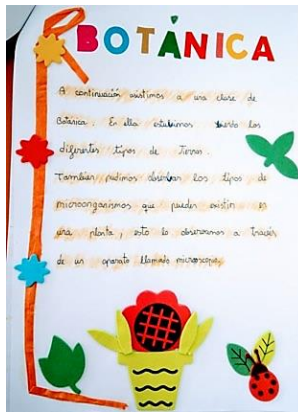 BOTÁNICA
A continuación asistimos a una clase de
Botánica. En ella estubimos viendo los
diferentes tipos de Tierras.
También pudimos observar los tipos de
microorganismos que pueden existir es
una planta, esto lo observamos a través
de un aparato llamado microscopio.